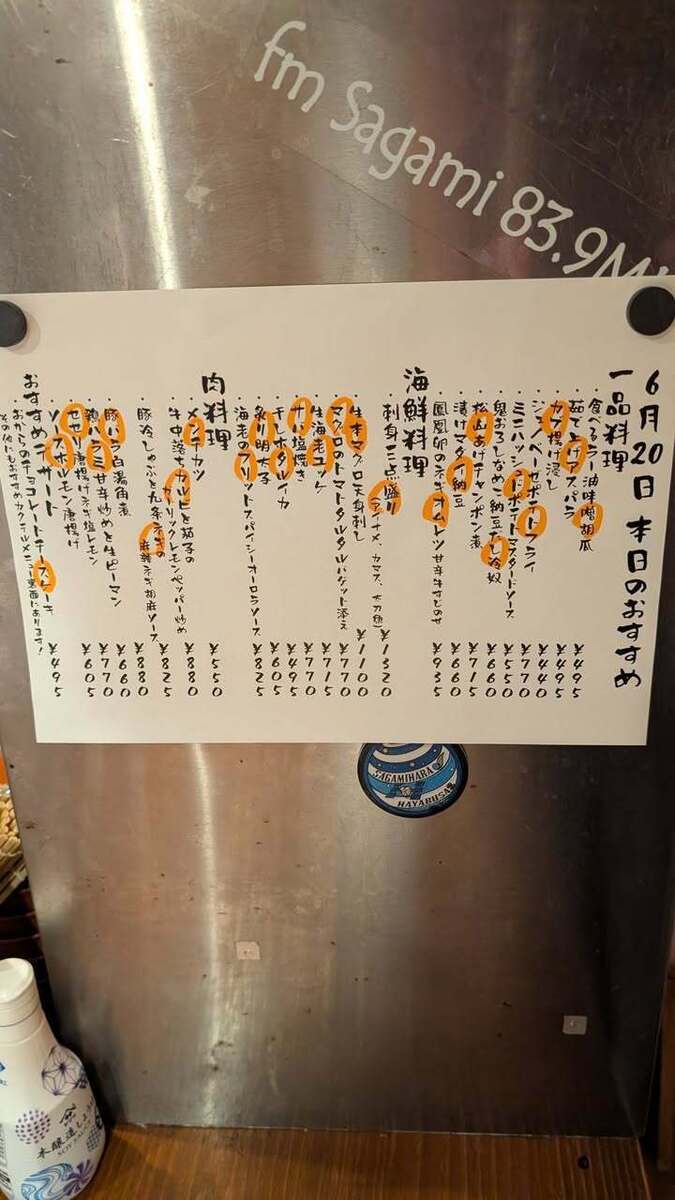 fm Sagami 83.9M
6月20日 本日のおすすめ
一品料理
・食べるラー油味噌胡瓜 ¥495
・茹で上げアスパラ ¥495
・カブ揚げ浸し ¥440
・ジェノベーゼポテトフライ ¥770
・ミニハッシュドポテトマスタードソース ¥550
・鬼おろしなめこ納豆だし冷奴 ¥660
・松山あげチャンポン煮 ¥715
・漬けマグロ納豆 ¥660
・鳳凰卵のネギオムレツ甘辛牛すじのせ ¥935
海鮮料理
・刺身三点盛り(アイナメ、カマス、太刀魚) ¥1320
・生本マグロ天身刺し ¥1100
・マグロのトマトタルタルバゲット添え ¥770
・生海老ユッケ ¥715
・ナバ塩焼き ¥770
・生ホタルイカ ¥495
・炙り明太子 ¥605
・海老のフリットスパイシーオーロラソース ¥825
肉料理
・メンチカツ ¥550
・牛中落ちカルビと茄子の
ガーリックレモンペッパー炒め ¥880
・豚冷しゃぶと九条ネギの
麻辣ネギ胡麻ソース ¥825
・豚バラ白湯角煮 ¥880
・鶏バラ甘辛炒めと生ピーマン ¥660
・セセリ唐揚げねぎ塩レモン ¥770
・ソースホルモン唐揚げ ¥605
おすすめデザート
・おからのチョコレートチーズケーキ ¥495
その他にもおすすめカクテルメニュー裏面にあります!
SAGAMIHARA
HAYABUSA
本醸造しょうゆ